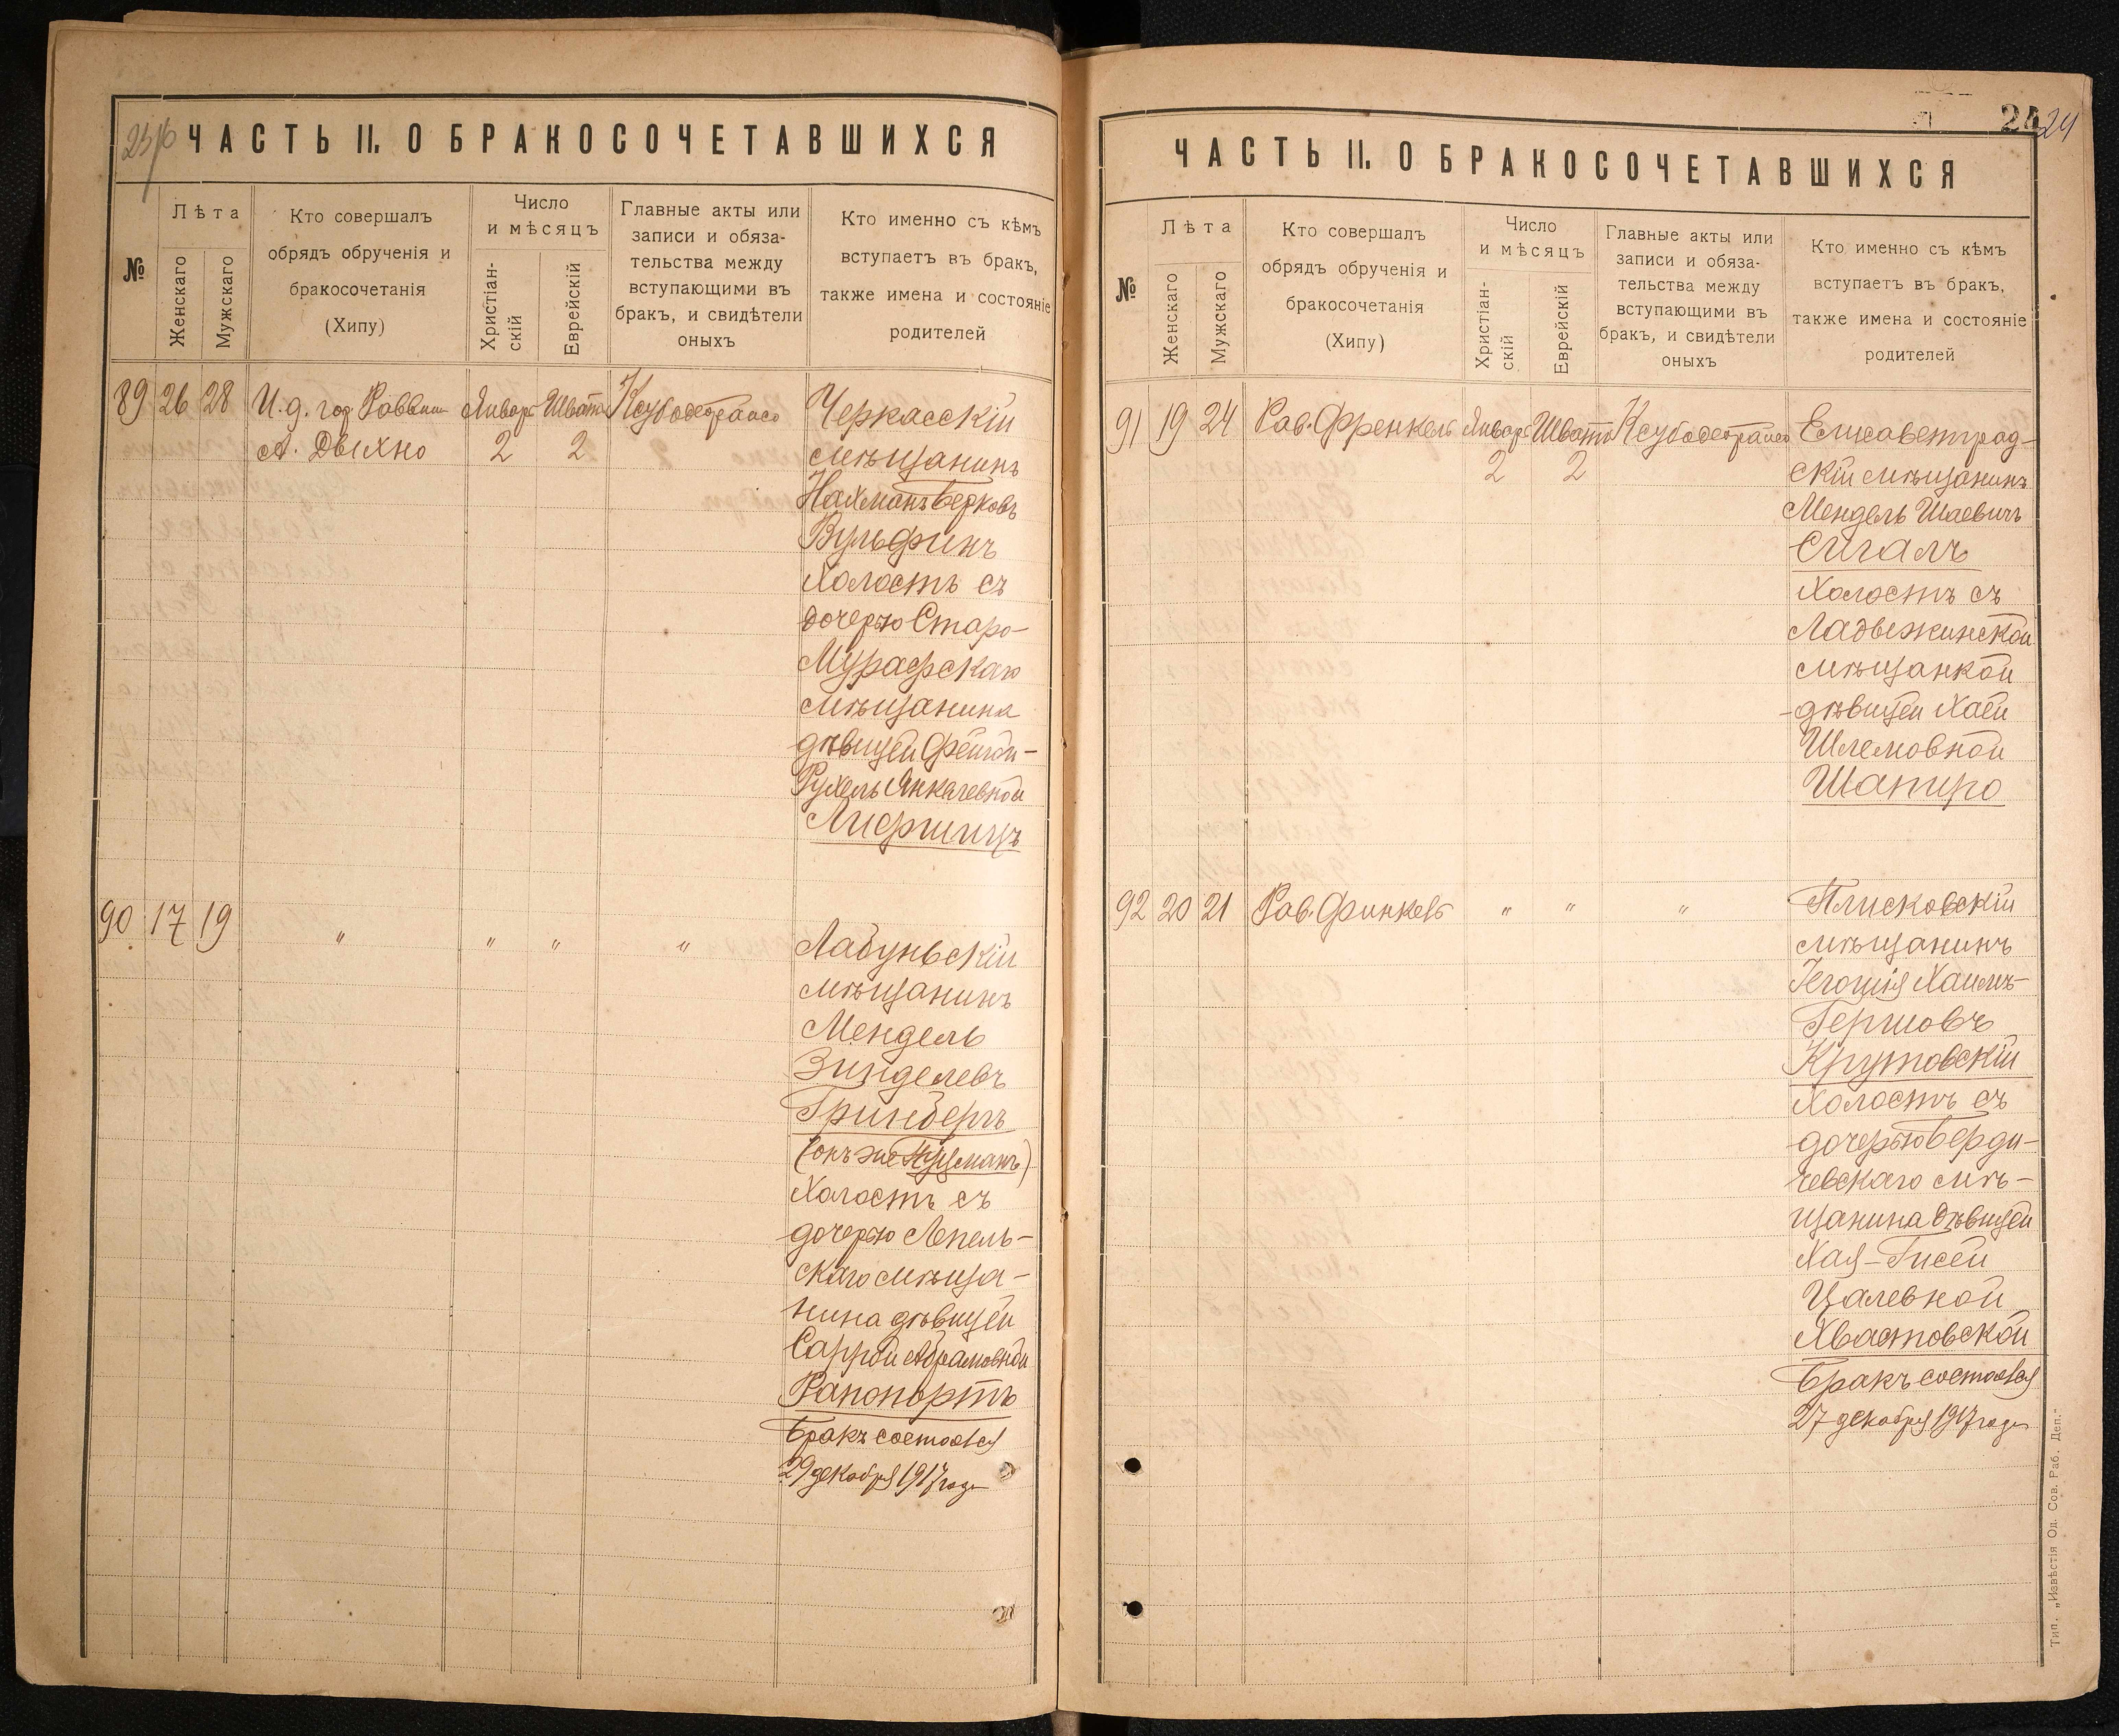 ЧАСТЬ II. О БРАКОСОЧЕТАВШИХСЯ
№
Лѣта
Женскаго
Мужскаго
Кто совершалъ
обрядъ обрученія и
бракосочетанія
(Хипу)
Число
и мѣсяцъ
Христіан-
скій
Еврейскій
Главные акты или
записи и обяза-
тельства между
вступающими въ
бракъ, и свидѣтели
оныхъ
Кто именно съ кѣмъ
вступаетъ въ бракъ,
также имена и состояніе
родителей
89 26 28 И. д. гор. Раввин Январь Шватъ
А. Двихно 2 2
Черкасскій
мѣщанинъ
Нахманъ Берковъ
Вульфинъ
Холостъ съ
дочерью Старо-
Мурафскаго
мѣщанина
дѣвицей Фейгой-
Рухель Янкелевной
Лифшицъ
90 17 19 " " " "
Лабуньскій
мѣщанинъ
Мендель
Зинделевъ
Гринбергъ
(онъ же Куцманъ)
Холостъ съ
дочерью Лепель-
скаго мѣща-
нина дѣвицей
Саррой Абрамовной
Рапопортъ
Бракъ состоялся
29 декабря 1917 года
24
24
ЧАСТЬ II. О БРАКОСОЧЕТАВШИХСЯ
№
Лѣта
Женскаго
Мужскаго
Кто совершалъ
обрядъ обрученія и
бракосочетанія
(Хипу)
Число
и мѣсяцъ
Христіан-
скій
Еврейскій
Главные акты или
записи и обяза-
тельства между
вступающими въ
бракъ, и свидѣтели
оныхъ
Кто именно съ кѣмъ
вступаетъ въ бракъ,
также имена и состояніе
родителей
91 19 24 Рав. Френкель Январь Шватъ
2 2
Елисаветград-
скій мѣщанинъ
Мендель Шаевичъ
Сигалъ
Холостъ съ
Ладвежинской
мѣщанкой
дѣвицей Хаей
Шлемовной
Шапиро
92 20 21 Рав. Финкель " " "
Плисковскій
мѣщанинъ
Іегошія Хаимъ-
Гершовъ
Крутовскій
Холостъ съ
дочерью Берди-
чевскаго мѣ-
щанина дѣвицей
Хая-Гисей
Цалевной
Хвастовской
Бракъ состоялся
27 декабря 1917 года
Тип. „Извѣстія Од. Сов. Раб. Деп."